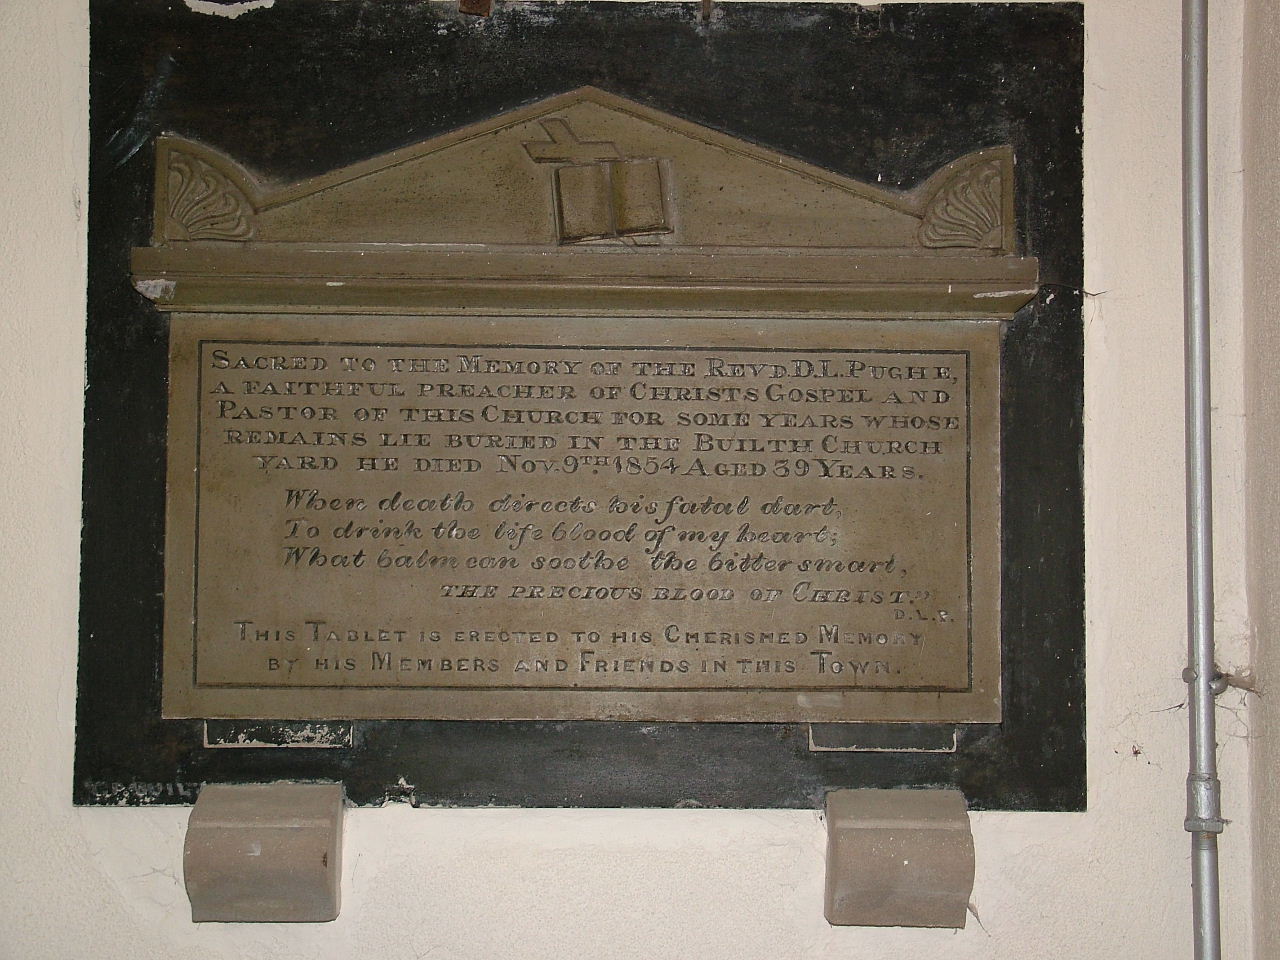 Sacred to the Memory of the Revd. D. L. Pughe,
a faithful preacher of Christs Gospel and
Pastor of this Church for some years whose
remains lie buried in the Builth Church
yard he died Nov. 9th. 1854 Aged 39 Years.
When death directs his fatal dart,
To drink the life blood of my heart;
What balm can soothe the bitter smart,
the precious blood of Christ."
D.L.P.
This Tablet is erected to his Cherished Memory
by his Members and Friends in this Town.